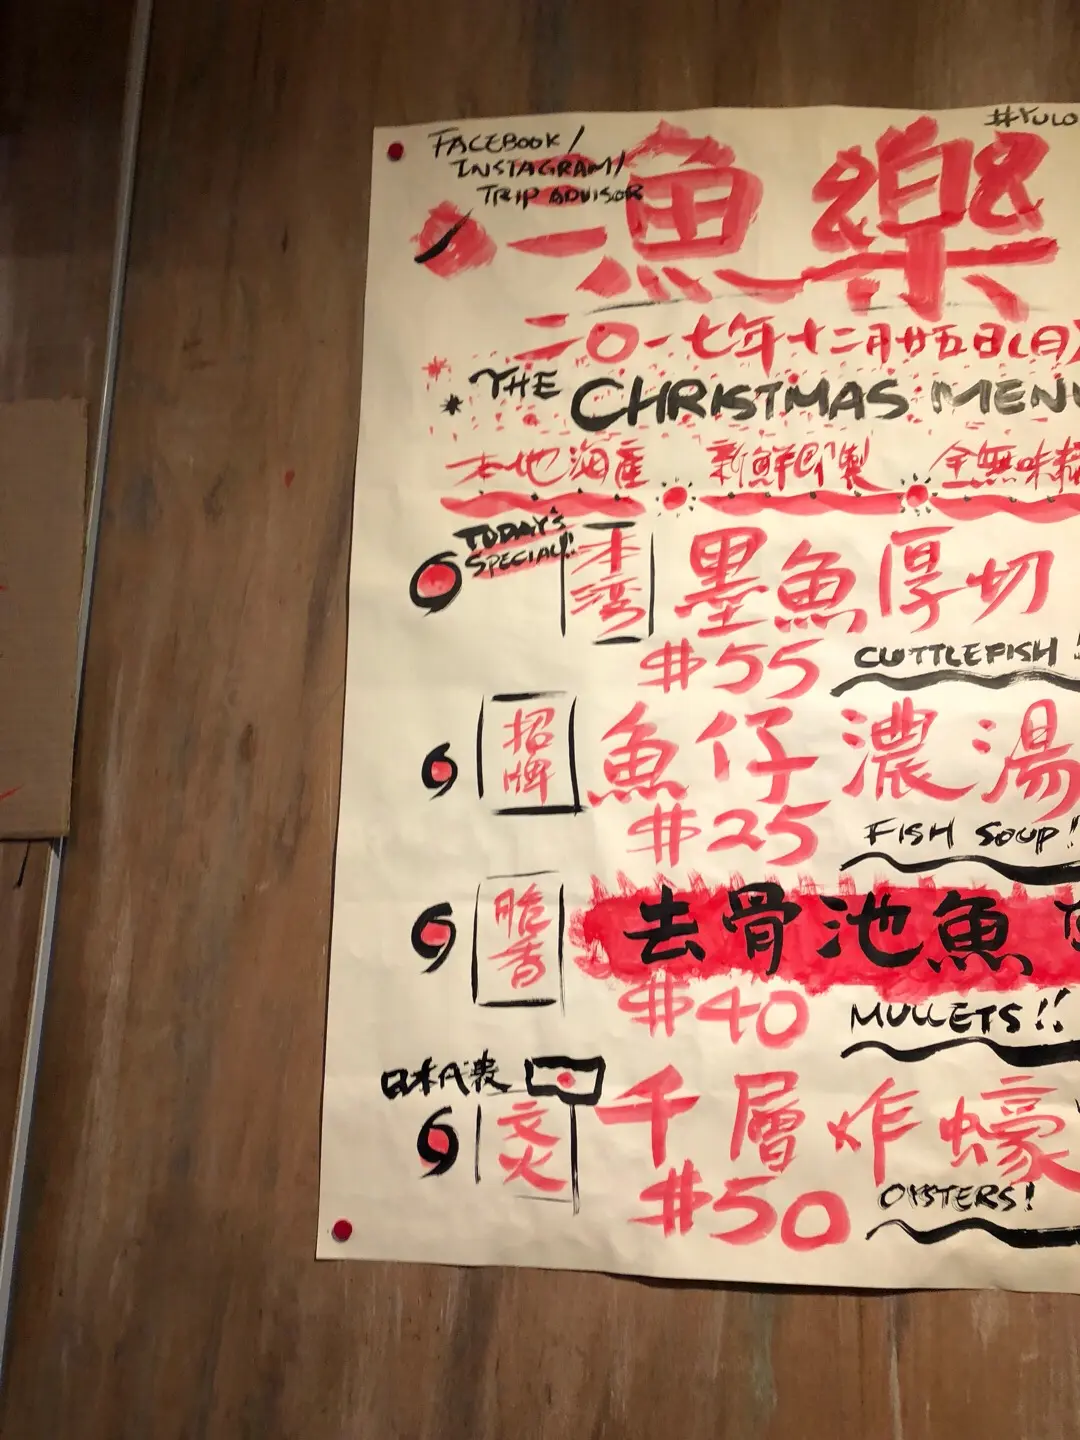 #YULO
FACEBOOK/
INSTAGRAM/
TRIP ADVISOR
一魚樂
二〇一七年十二月廿五日(月)
*THE CHRISTMAS MENU
本地海產 新鮮即製 全無味精
TODAY'S
SPECIAL!!
本灣 墨魚厚切
$55 CUTTLEFISH!
招牌 魚仔濃湯
$25 FISH SOUP!
脆香 去骨池魚
$40 MULLETS!!
日本代表
炆火 千層炸蠔
$50 OYSTERS!